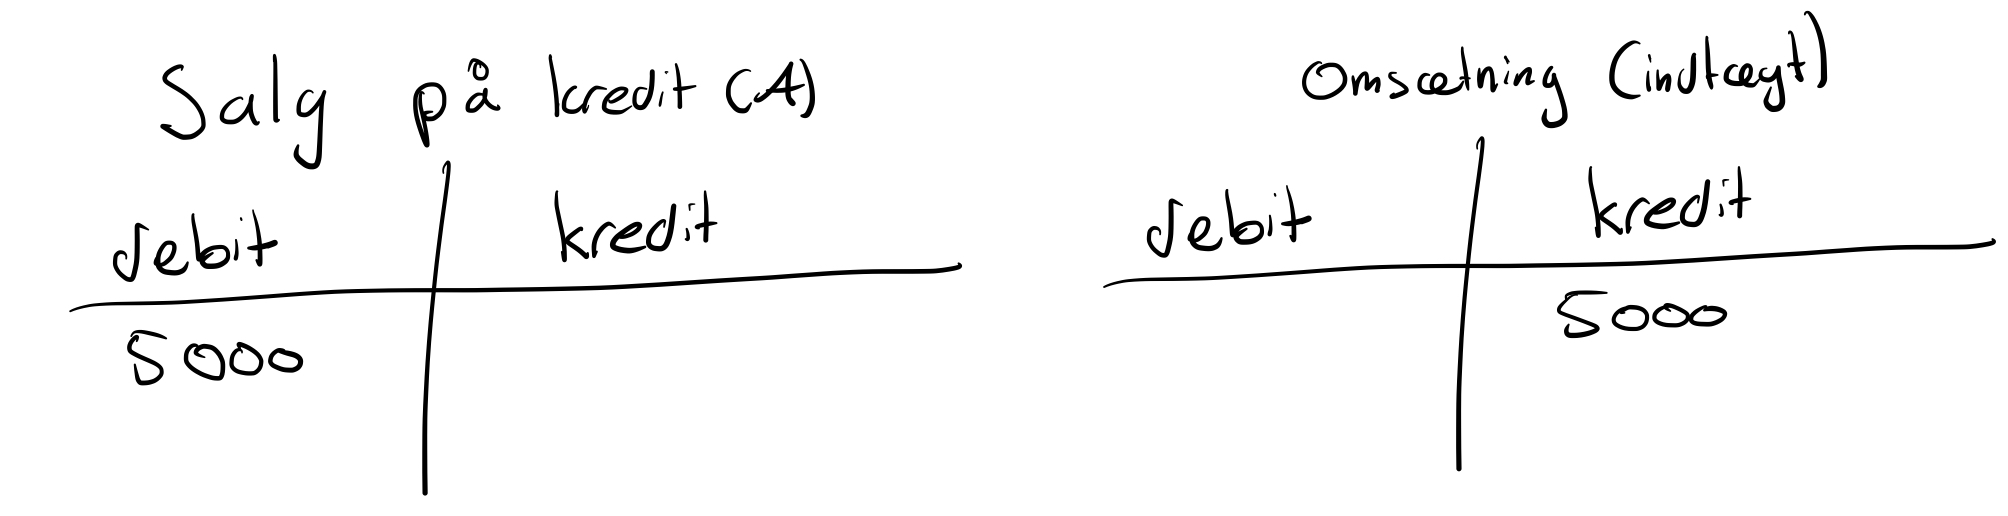 Salg på kredit (A)
debit kredit
5000
Omsætning (indtægt)
debit kredit
5000